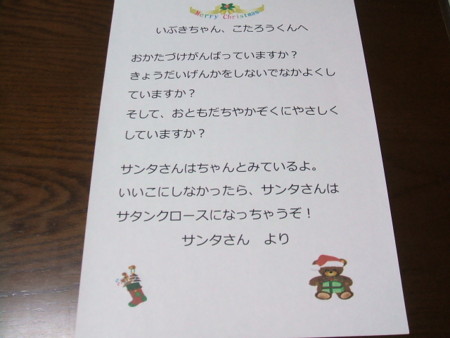 Merry Christmas
いぶきちゃん、こたろうくんへ
おかたづけがんばっていますか?
きょうだいげんかをしないでなかよくし
ていますか?
そして、おともだちやかぞくにやさしく
していますか?
サンタさんはちゃんとみているよ。
いいこにしなかったら、サンタさんは
サタンクロースになっちゃうぞ!
サンタさん より